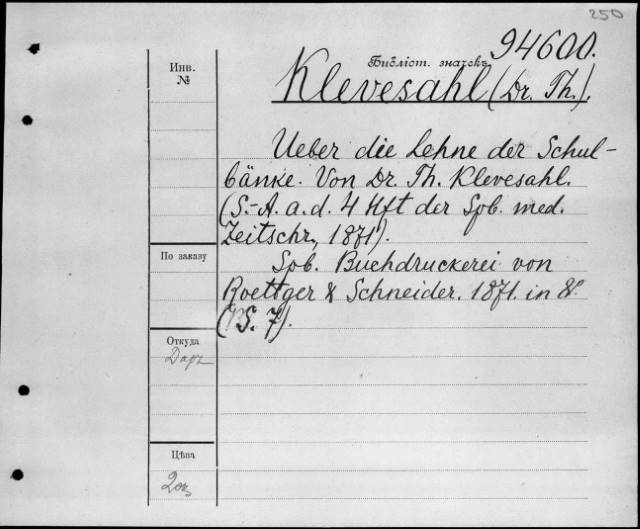 250
94600.
Библіот. значекъ
Инв.
№
Klevesahl (Dr. Th.).
Ueber die Lehne der Schul-
bänke. Von Dr. Th. Klevesahl.
(S.-A. a. d. 4 Hft der Spb. med.
Zeitschr., 1871).
По заказу
Spb. Buchdruckerei von
Roettger & Schneider. 1871. in 8°.
(S. 7).
Откуда
Даръ
Цѣна